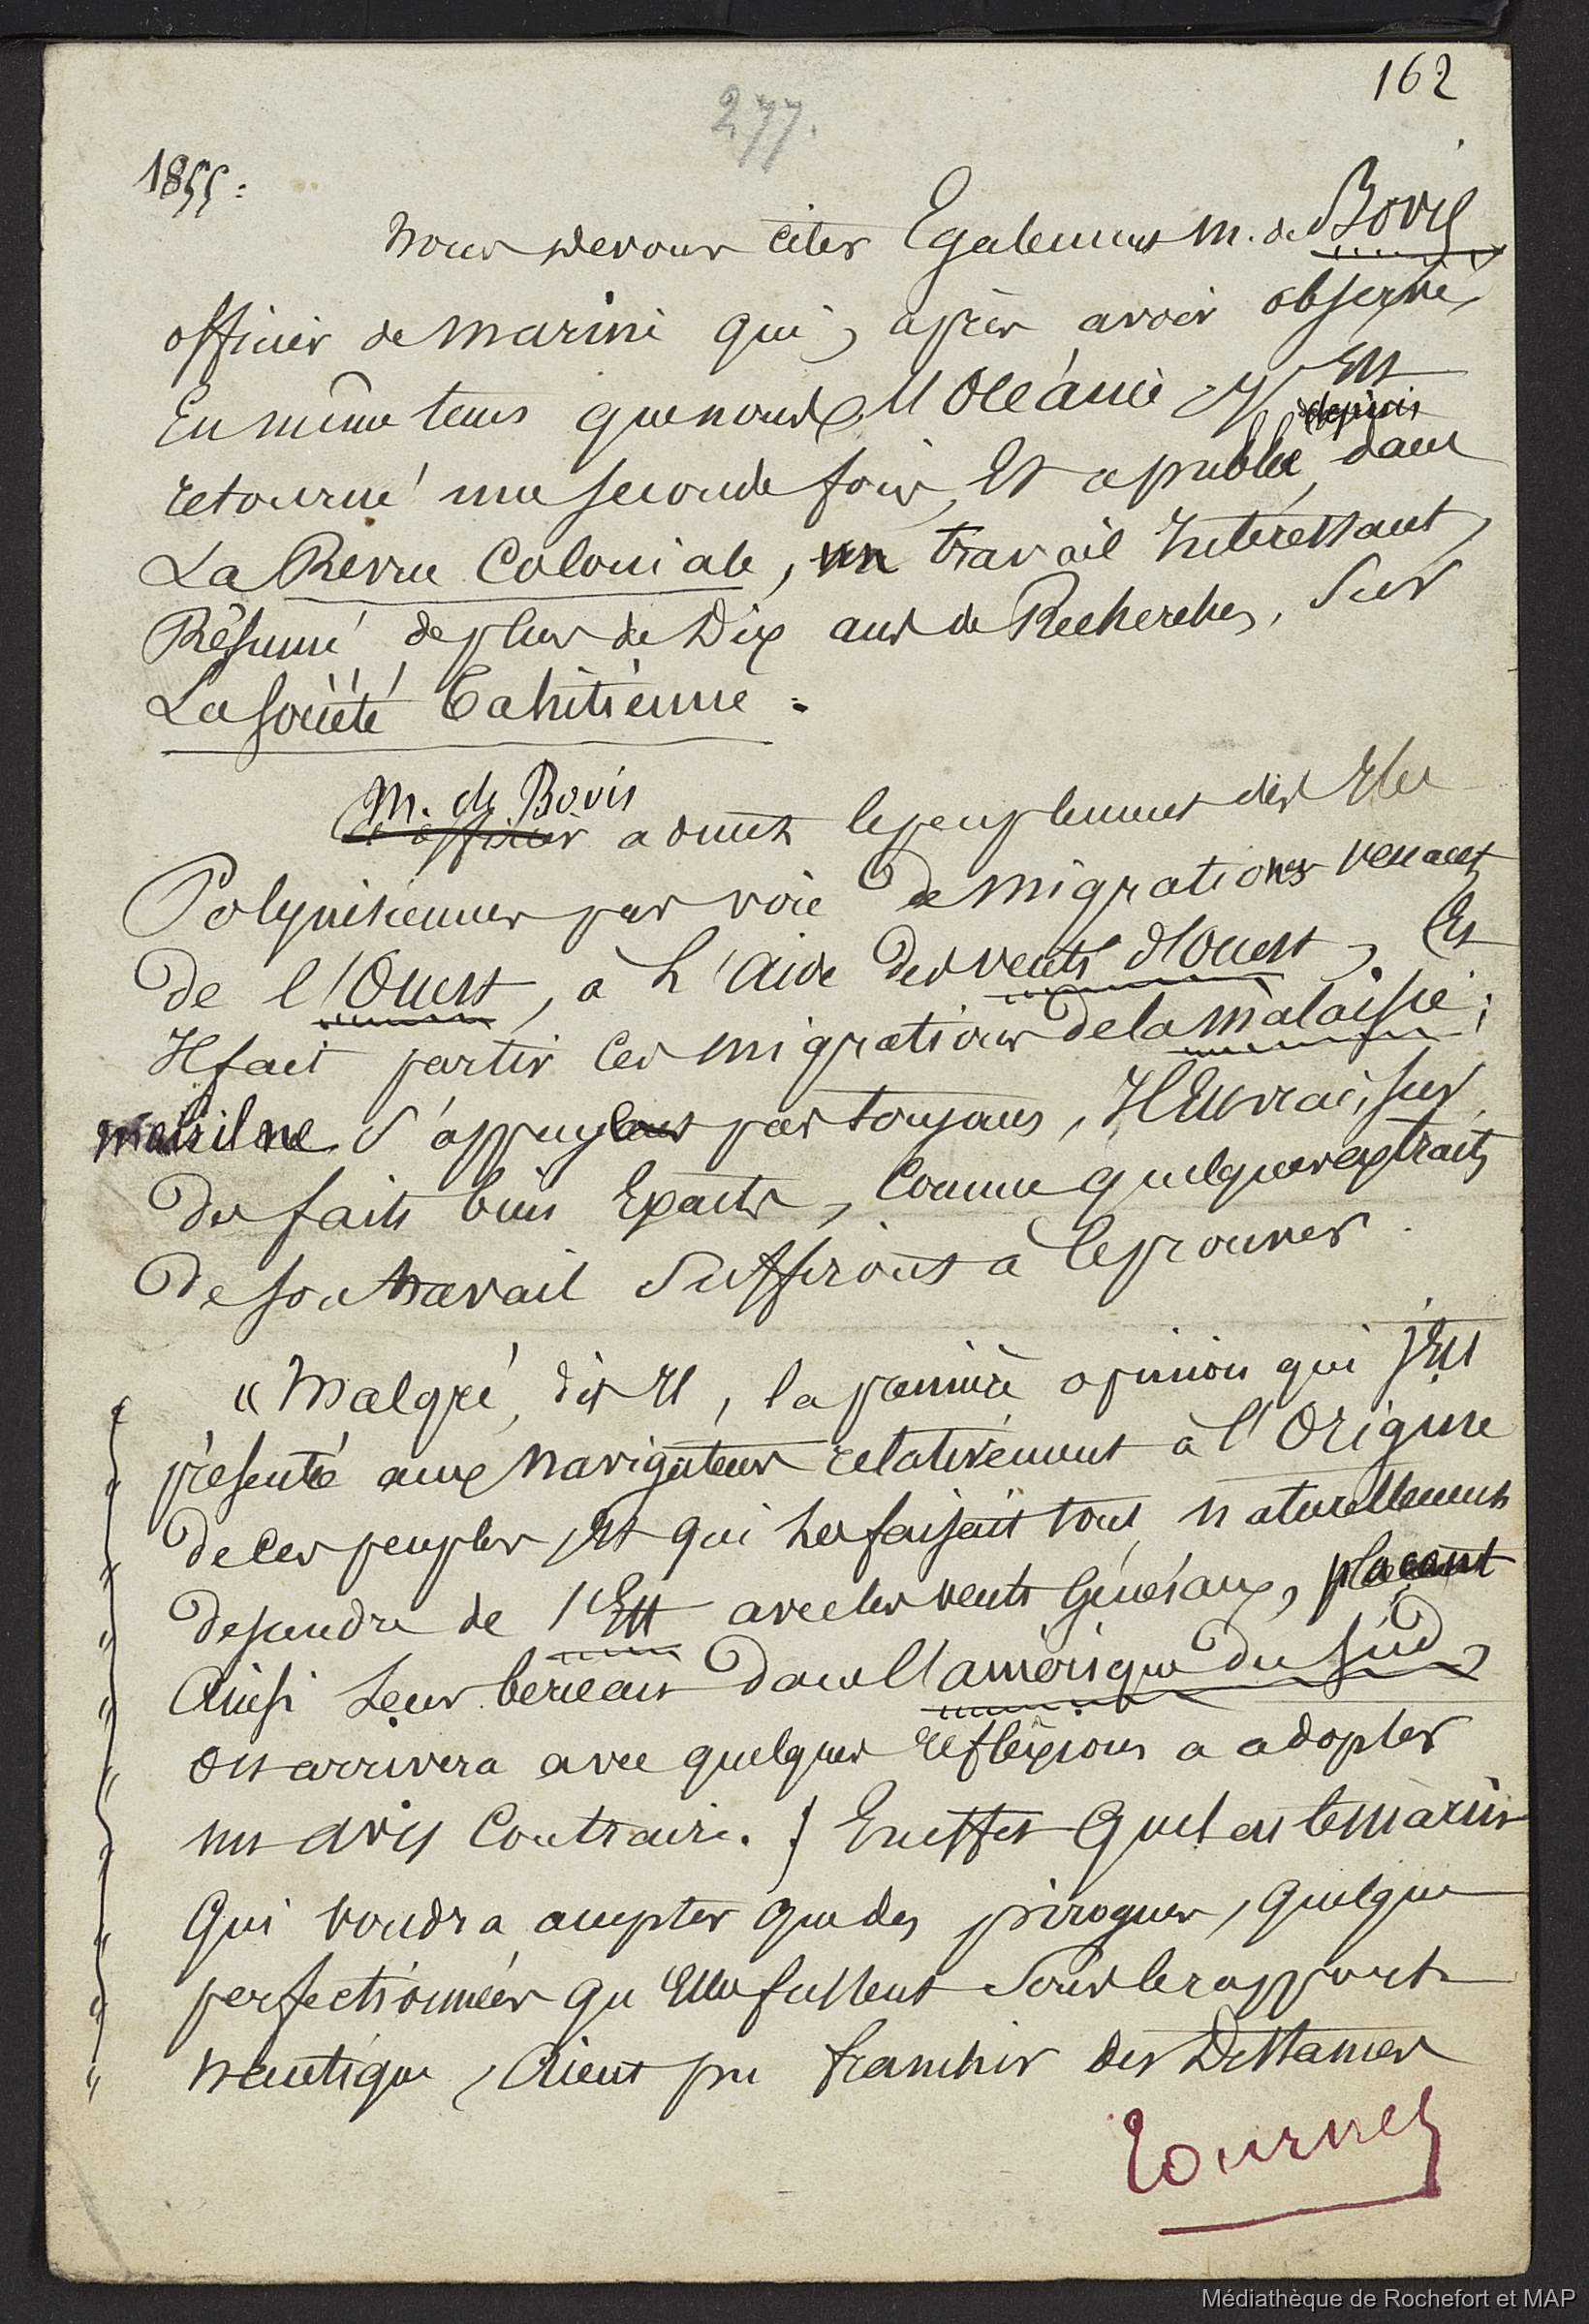 162
277.
1855:
Nous devons citer Egalement M. de Bovis
officier de marine qui, après avoir observé,
En même tems que nous, l'Océanie y Est
retourné une seconde fois, Et a publié, depuis dans
La Revue Coloniale, un travail Interessant,
Résumé de plus de Dix ans de Recherches, sur
La société Tahitienne.
M. de Bovis
Cet officier admet le peuplement des Iles
Polynisiennes par voie de migrations venant
De l'Ouest, à l'aide des vents d'Ouest, Et
Il fait partir ces migrations de la Malaisie;
mais il ne s'appuy pas toujours, Il Est vrai, sur
des faits bien Exacts, Comme quelques extraits
De son travail suffiront à le prouver.
« Malgré, dit Il, la première opinion qui s'Est
présenté aux navigateurs relativement à l'Origine
de ces peuples Et qui les faisait tout naturellement
descendre de l'Est avec les vents Généraux, plaçant
Ainsi Leur berceau dans l'amérique du sud,
on arrivera avec quelques réflexions a adopter
un avis Contraire. } En effet Quel est le marin
Qui voudra accepter que des pirogues, Quelque
perfectionnées qu'Elles fussent sous le rapport
nautique, Aient pu franchir des Distances
Tournez
Médiathèque de Rochefort et MAP